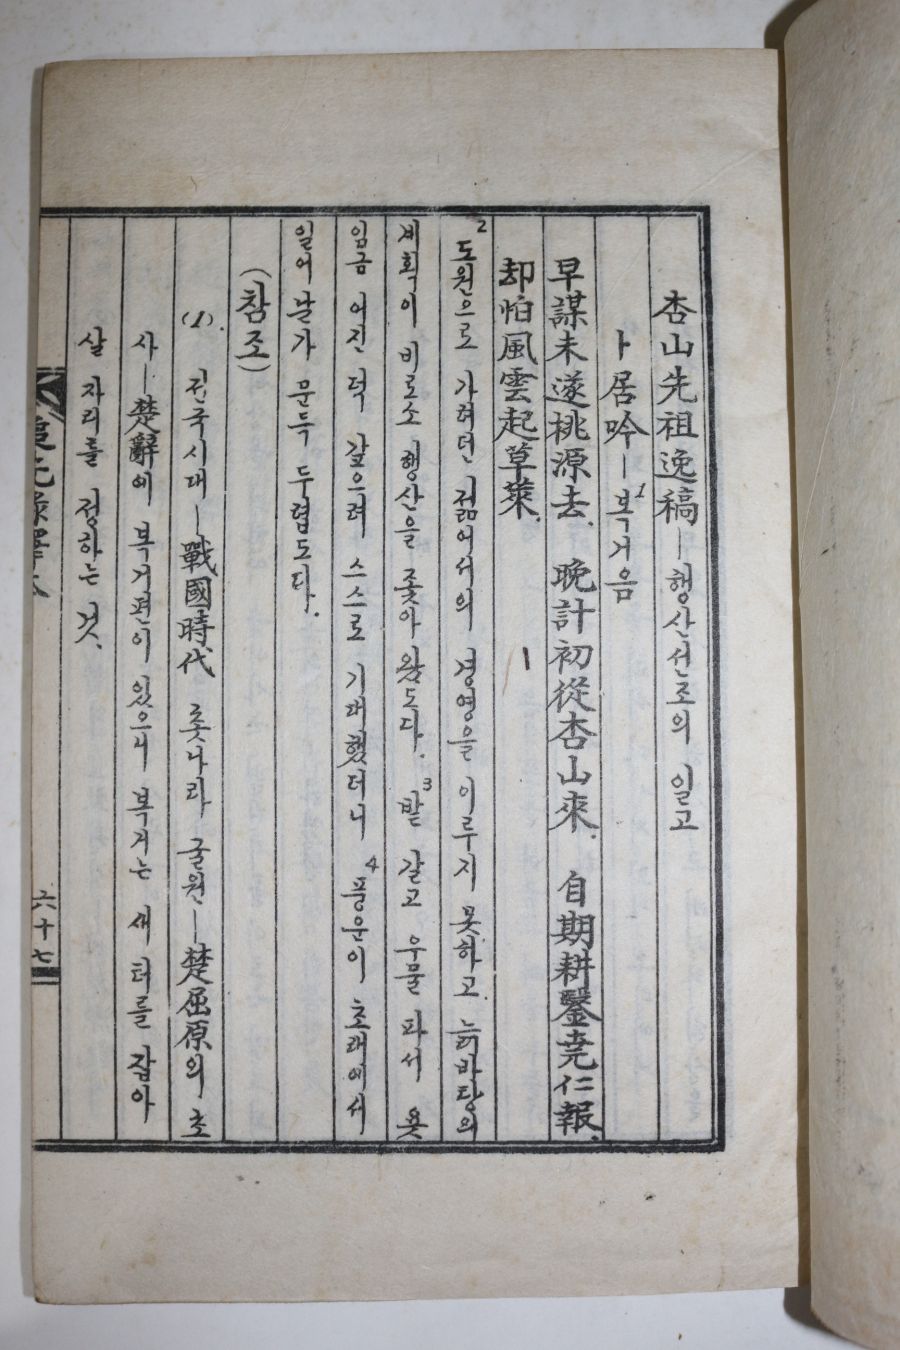 杏山先祖逸稿ㅣ행산선조의 일고
卜居吟ㅣ복거음1
早謀未遂桃源去. 晩計初從杏山來. 自期耕鑿堯仁報.
却怕風雲起草萊.
2도원으로 가려던 젊어서의 경영을 이루지 못하고 늙바탕의
계획이 비로소 행산을 좇아 왔도다. 3밭 갈고 우물 파서 욧
임금 어진 덕 갚으려 스스로 기대했더니 4풍운이 초래에서
일어날가 문득 두렵도다.
(참조)
(1). 전국시대ㅣ戰國時代 촛나라 굴원ㅣ楚屈原의 초
사ㅣ楚辭에 복거편이 있으니 복거는 새 터를 잡아
살 자리를 정하는 것.
六十七